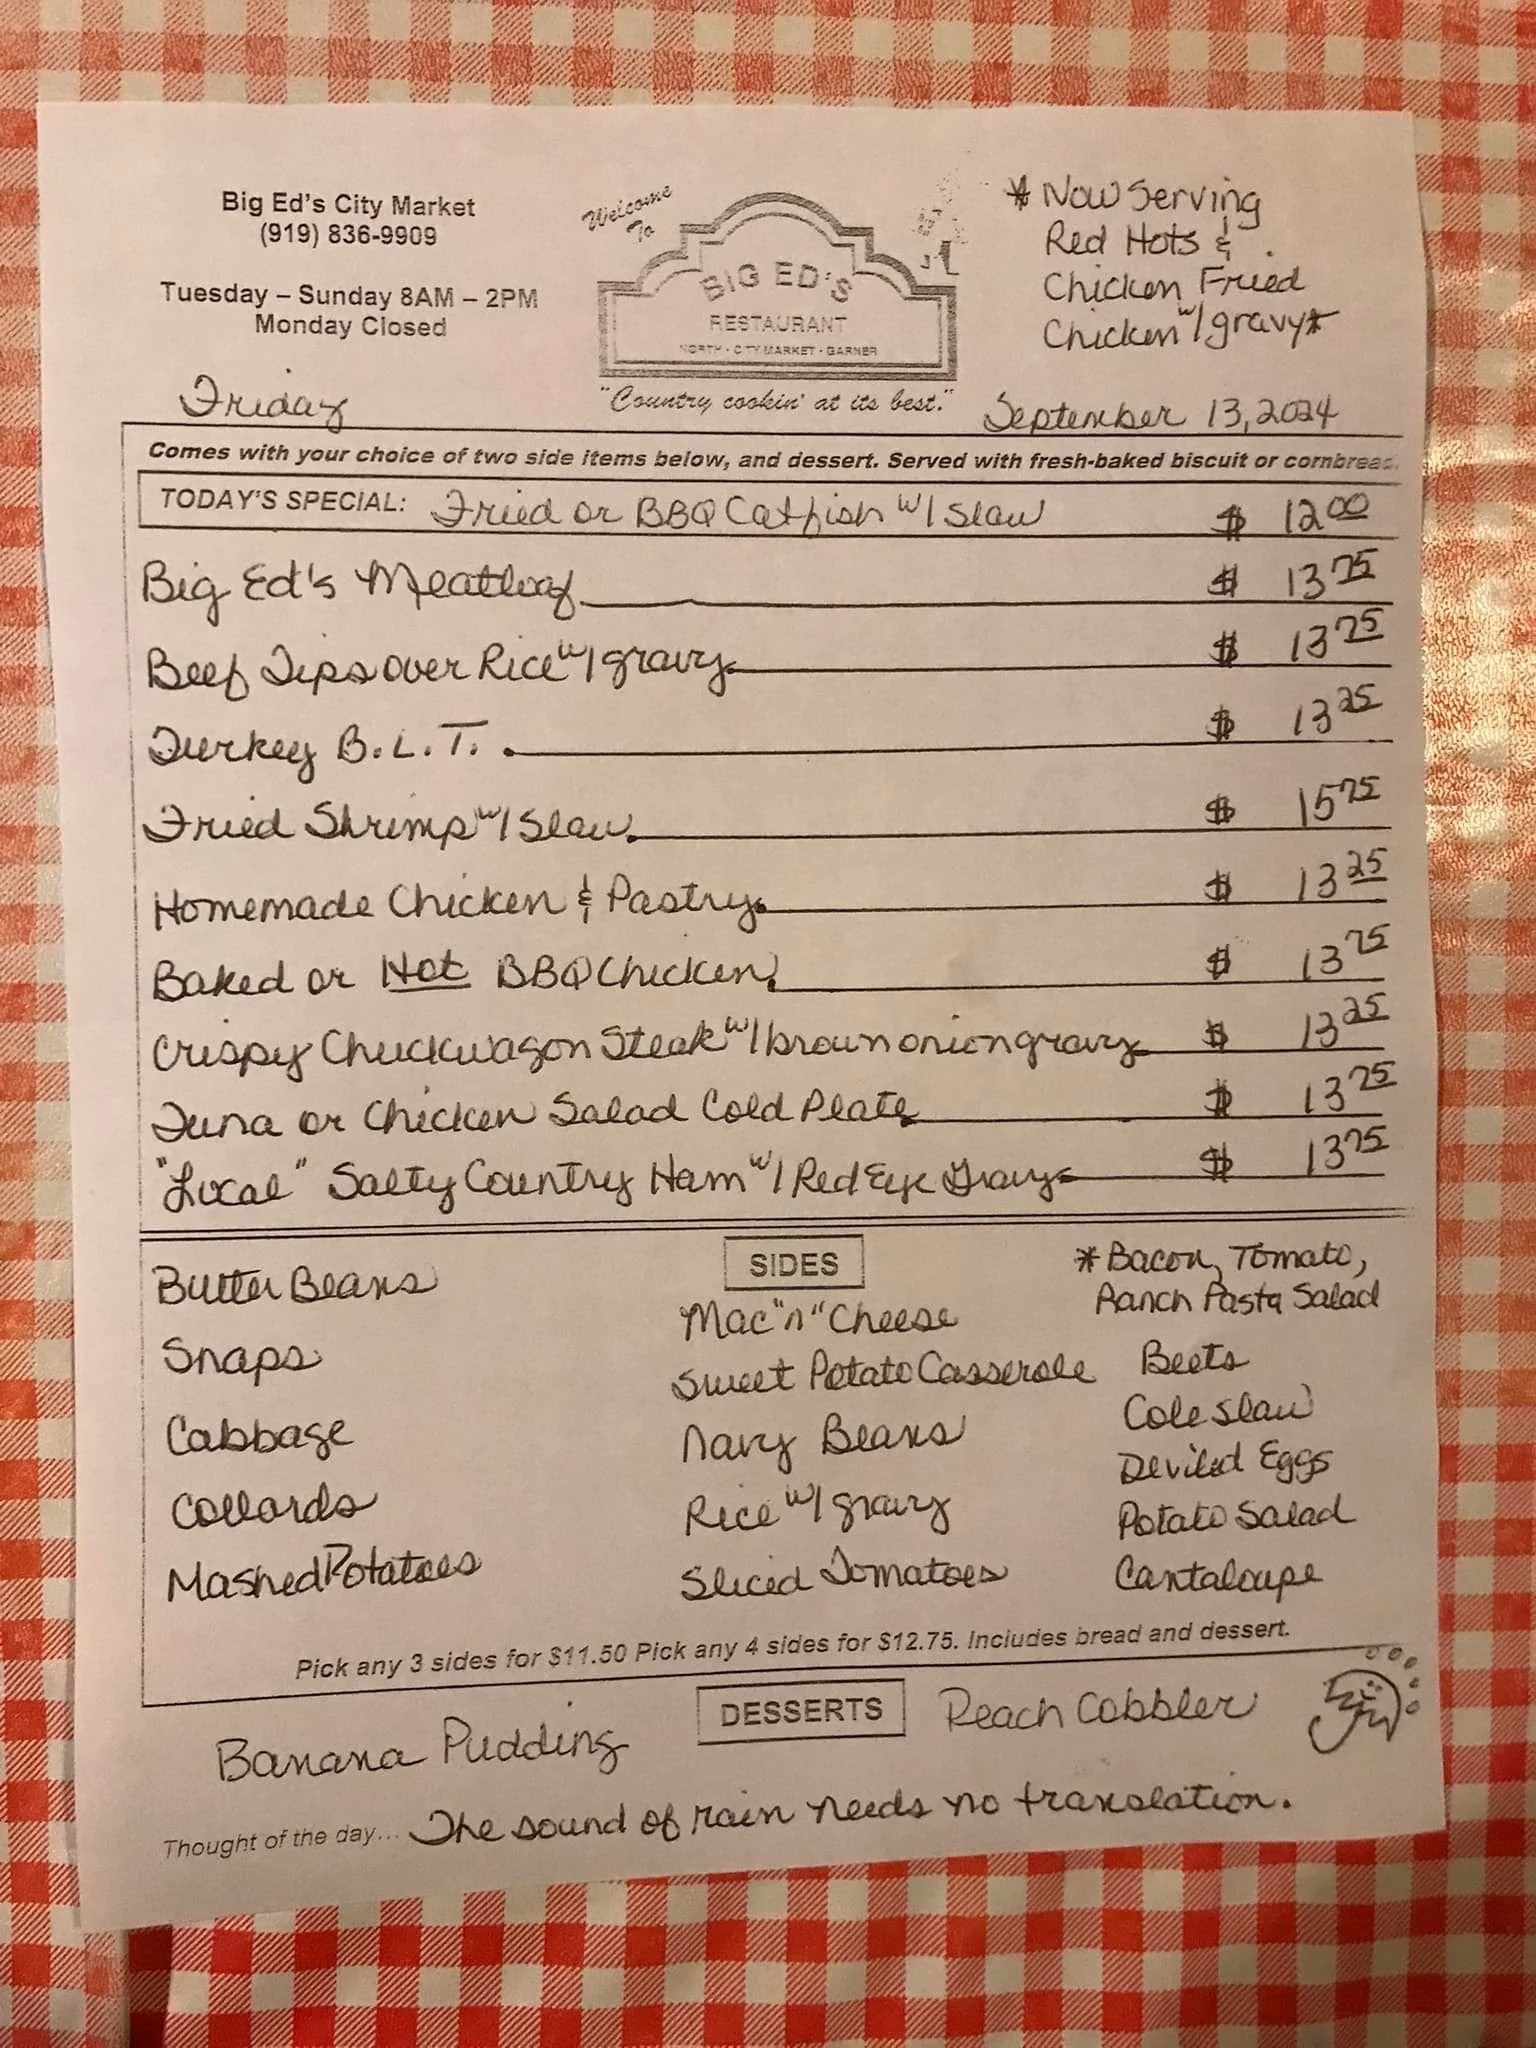 Big Ed's City Market
(919) 836-9909
Tuesday – Sunday 8AM – 2PM
Monday Closed
Welcome
To
BIG ED'S
RESTAURANT
NORTH · CITY MARKET · GARNER
"Country cookin' at its best."
* Now Serving
Red Hots &
Chicken Fried
Chicken w/ gravy *
Friday
September 13, 2024
Comes with your choice of two side items below, and dessert. Served with fresh-baked biscuit or cornbread.
TODAY'S SPECIAL: Fried or BBQ Catfish w/ Slaw $ 12.00
Big Ed's Meatloaf $ 13.75
Beef Tips over Rice w/ gravy $ 13.75
Turkey B.L.T. $ 13.25
Fried Shrimp w/ Slaw $ 15.75
Homemade Chicken & Pastry $ 13.25
Baked or Hot BBQ Chicken $ 13.75
Crispy Chuckwagon Steak w/ brown onion gravy $ 13.25
Tuna or Chicken Salad Cold Plate $ 13.75
"Local" Salty Country Ham w/ Red Eye Gravy $ 13.75
SIDES
Butter Beans
Snaps
Cabbage
Collards
Mashed Potatoes
Mac "n" Cheese
Sweet Potato Casserole
Navy Beans
Rice w/ gravy
Sliced Tomatoes
* Bacon, Tomato,
Ranch Pasta Salad
Beets
Cole Slaw
Deviled Eggs
Potato Salad
Cantaloupe
Pick any 3 sides for $11.50 Pick any 4 sides for $12.75. Includes bread and dessert.
DESSERTS
Banana Pudding
Peach Cobbler
Thought of the day... The sound of rain needs no translation.